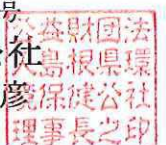 社
彦
公益財団法
人島根県環
境保健公社
理事長之印